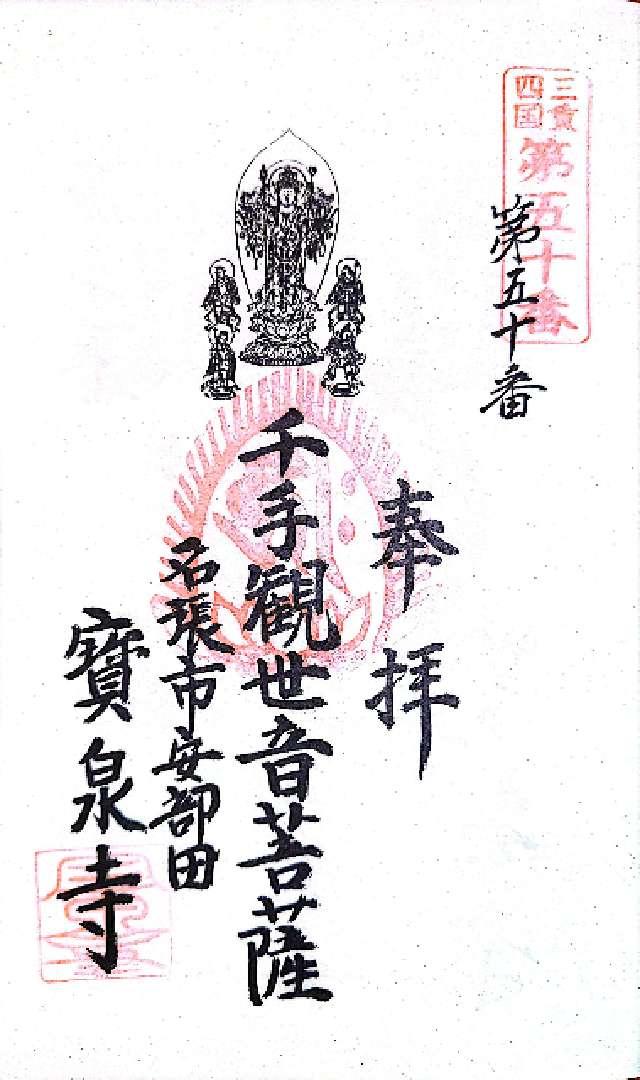 三重
四国
第五十番
第五十番
奉拝
千手觀世音菩薩
名張市安部田
寶泉寺